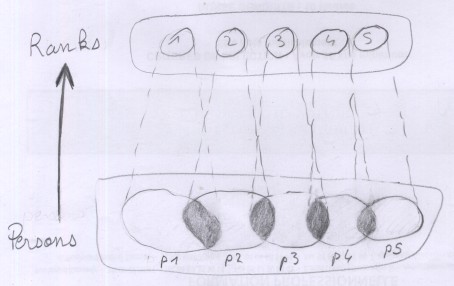 Ranks
1 2 3 4 5
Persons
p1 p2 p3 p4 p5